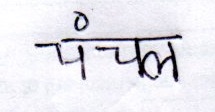 पंचल